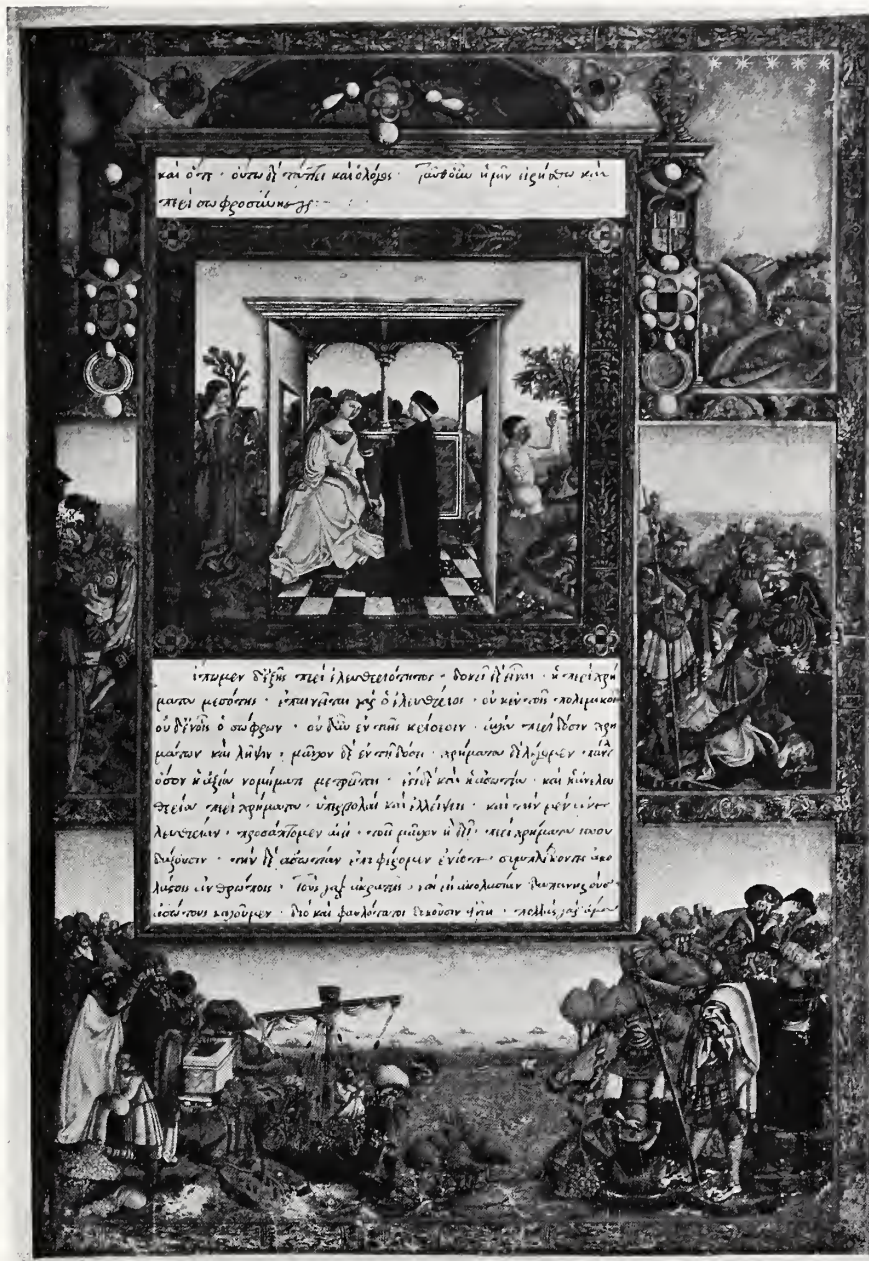 καὶ ὅτε · οὕτω δὲ τάττει καὶ ὁ λόγος · Ταῦτ' οὖν ἡμῖν εἰρήσθω καὶ
περὶ σωφροσύνης
έγωμεν δ' ἑξῆς περὶ ἐλευθεριότητος · δοκεῖ δὲ εἶναι · ἡ περὶ χρή
ματα μεσότης · ἐπαινεῖται γὰρ ὁ ἐλευθέριος · οὐκ ἐν τοῖς πολεμικοῖς
οὐδ' ἐν οἷς ὁ σώφρων · οὐδ' αὖ ἐν ταῖς κρίσεσιν · ἀλλὰ περὶ δόσιν χρη
μάτων καὶ λῆψιν · μᾶλλον δὲ ἐν τῇ δόσει · χρήματα δὲ λέγομεν · πάντα
ὅσων ἡ ἀξία νομίσματι μετρεῖται · ἔστι δὲ καὶ ἡ ἀσωτία · καὶ ἡ ἀνελευ
θερία περὶ χρήματα · ὑπερβολαὶ καὶ ἐλλείψεις · καὶ τὴν μὲν ἀνε
λευθερίαν · προσάπτομεν ἀεὶ · τοῖς μᾶλλον ἢ δεῖ · περὶ χρήματα σπου
δάζουσιν · τὴν δὲ ἀσωτίαν ἐπιφέρομεν ἐνίοτε · συμπλέκοντες ἀκο
λάστοις ἀνθρώποις · τοὺς γὰρ ἀκρατεῖς · καὶ εἰς ἀκολασίαν δαπανηροὺς
ἀσώτους καλοῦμεν · διὸ καὶ φαυλότατοι δοκοῦσιν εἶναι · πολλὰς γὰρ ἅμα